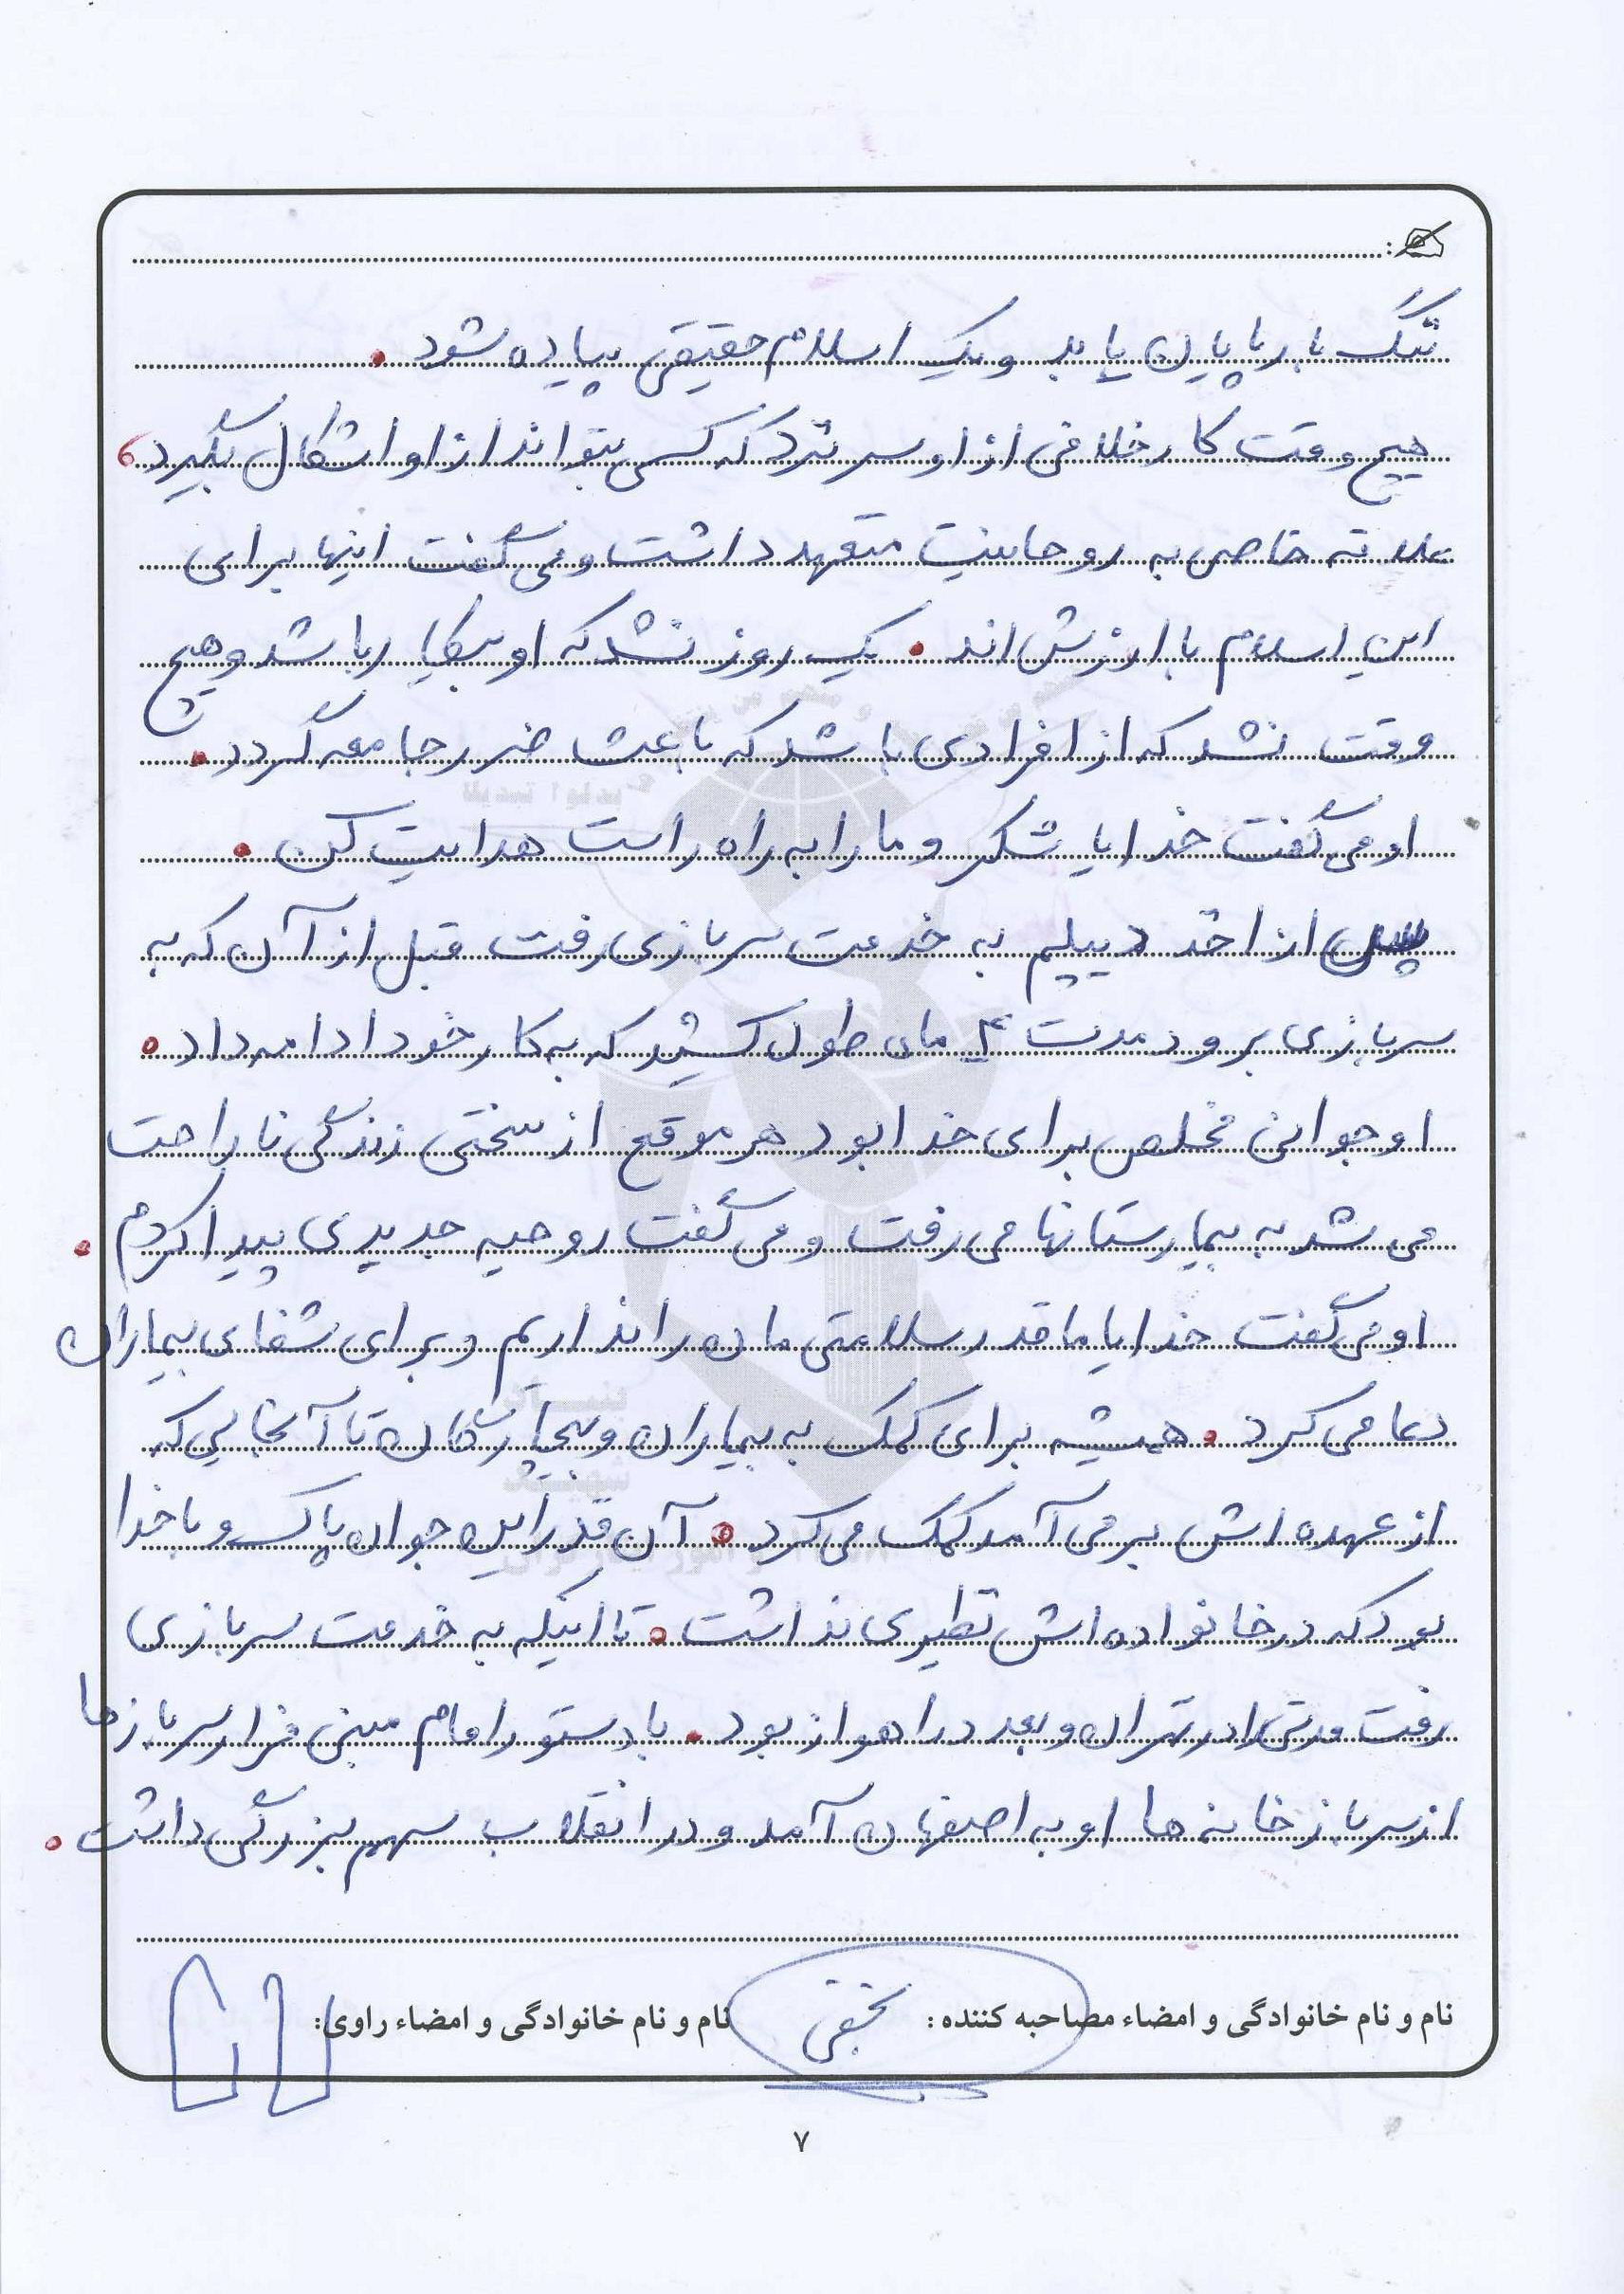 ننگ بار پایان یابد و یک اسلام حقیقی پیاده شود.
هیچ وقت کار خلافی از او سر نزد که کسی بتواند از او اشکال بگیرد،
علاقه خاصی به روحانیت متعهد داشت و می گفت اینها برای
این اسلام با ارزش اند. یک روز نشد که او بیکار باشد و هیچ
وقت نشد که از افرادی باشد که باعث ضرر جامعه گردد.
او می گفت خدایا شکر و ما را به راه راست هدایت کن.
پس از اخذ دیپلم به خدمت سربازی رفت قبل از آن که به
سربازی برود مدت ۴ ماه طول کشید که به کار خود ادامه داد.
او جوانی مخلص برای خدا بود هر موقع از سختی زندگی ناراحت
می شد به بیمارستانها می رفت و می گفت روحیه جدیدی پیدا کردم.
او می گفت خدایا ما قدر سلامتی مان را نداریم و برای شفای بیماران
دعا می کرد. همیشه برای کمک به بیماران و بیچارگان تا آنجایی که
از عهده اش بر می آمد کمک می کرد. آن قدر این جوان پاک و با خدا
بود که در خانواده اش نظیری نداشت. تا اینکه به خدمت سربازی
رفت مدتی در تهران و بعد در اهواز بود. با دستور امام مبنی فرار سربازها
از سرباز خانه ها او به اصفهان آمد و در انقلاب سهم بزرگی داشت.
نام و نام خانوادگی و امضاء مصاحبه کننده: نام و نام خانوادگی و امضاء راوی:
۷